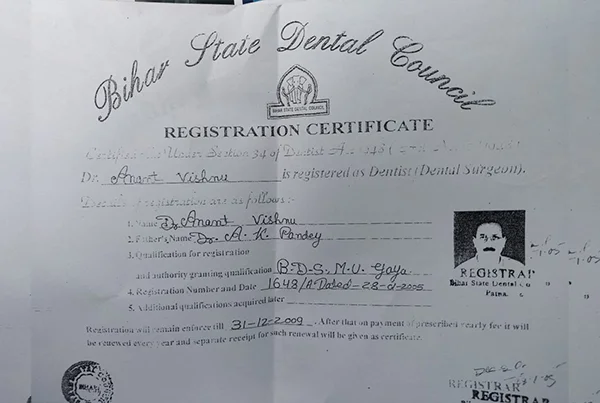 Bihar State Dental Council
BIHAR STATE DENTAL COUNCIL
REGISTRATION CERTIFICATE
Certified Under Section 34 of Dentist Act 1948
Dr. Anant Vishnu is registered as Dentist (Dental Surgeon).
Details of registration are as follows :-
1. Name Dr Anant Vishnu
2. Father's Name Dr. A. K. Pandey
3. Qualification for registration
and authority granting qualification B.D.S. M.U. Gaya
4. Registration Number and Date 1648/A Dated -28-2-2005
5. Additional qualifications acquired later
Registration will remain enforce till 31-12-2009. After that on payment of prescribed yearly fee it will
be renewed every year and separate receipt for such renewal will be given as certificate.
REGISTRAR
Bihar State Dental Co
Patna.
REGISTRAR
REGISTRAR